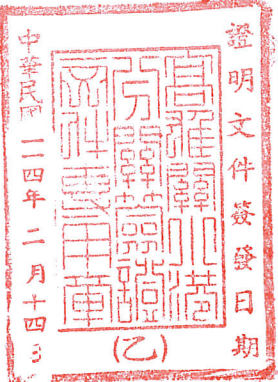 證明文件簽發日期
高雄關小港
分關簽證
文件專用章
中華民國 一一四年 二月十四
(乙)